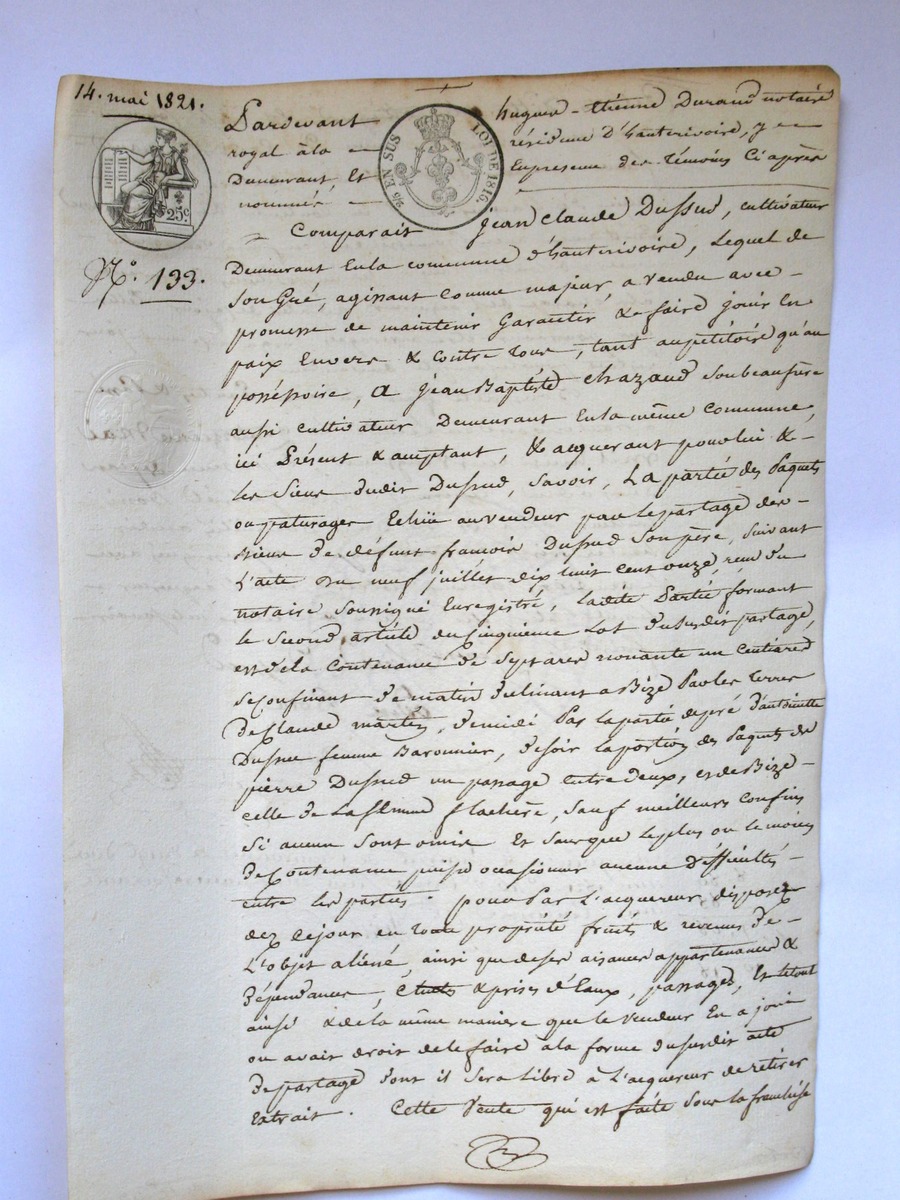 14. mai 1821.
Pardevant hugues-étienne Durand notaire
royal à la résidence D'hauterivoire, y
Demeurant, Et En presence des Témoins Ci après
nommés
25c
2/10 EN SUS LOI DE 1816.
N.º 133.
Comparait Jean Claude Dussud, cultivateur
Demeurant En la commune d'hauterivoire, Lequel de
son Gré, agissant comme majeur, a vendu avec
promesse de maintenir Garantir & faire jouir En
paix Envers & contre Tous, tant au pétitoire qu'au
possessoire, A Jean Baptiste chazaud son beaufrère
aussi cultivateur Demeurant En la même commune,
ici Présent & acceptant, & acquerant pour lui &
les siens dudit Dussud, savoir, La partie des Paquets
ou paturages Echue au vendeur par le partage des
biens de défunt francois Dussud son père, suivant
L'acte du neuf juillet dix huit cent onze, reçu du
notaire soussigné Enregistré, ladite Partie formant
le second article du Cinquieme Lot dudit partage,
est de la Contenance de sept ares nonante un centiares
se Confinant de matin declinant a Bize Par les terres
de Claude , de midi Par la partie de pré d'antoinette
Dussud femme Baronnier, de soir la portion des Paquets de
pierre Dussud un passage entre deux, et de Bize
celle de La flachère, sauf meilleurs confins
si aucun sont omis Et sans que le plus ou le moins
de Contenance puisse occasionner aucune Difficultés
entre les parties. pour Par L'acquereur, disposer
dez ce jour en toute propriété fruits & revenus de
L'objet aliené, ainsi que de ses aisances appartenances &
Dépendances, & prises d'Eaux, passages, Et le tout
ainsi & de la même manière que le vendeur En a joui
ou avait droit de le faire à la forme du susdit acte
de partage dont il sera Libre à L'acquereur de retirer
Extrait. Cette Vente qui est faite sous la franchise